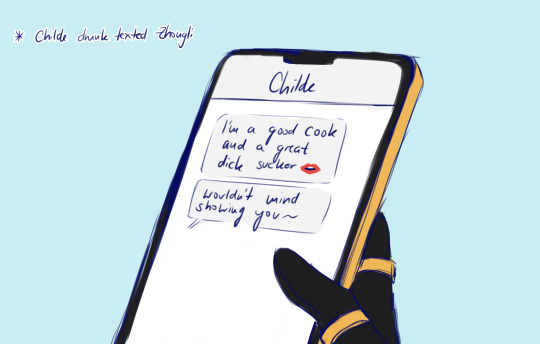 * Childe drunk texted Zhongli
Childe
I'm a good cook
and a great
dick sucker 👄
wouldn't mind
showing you~